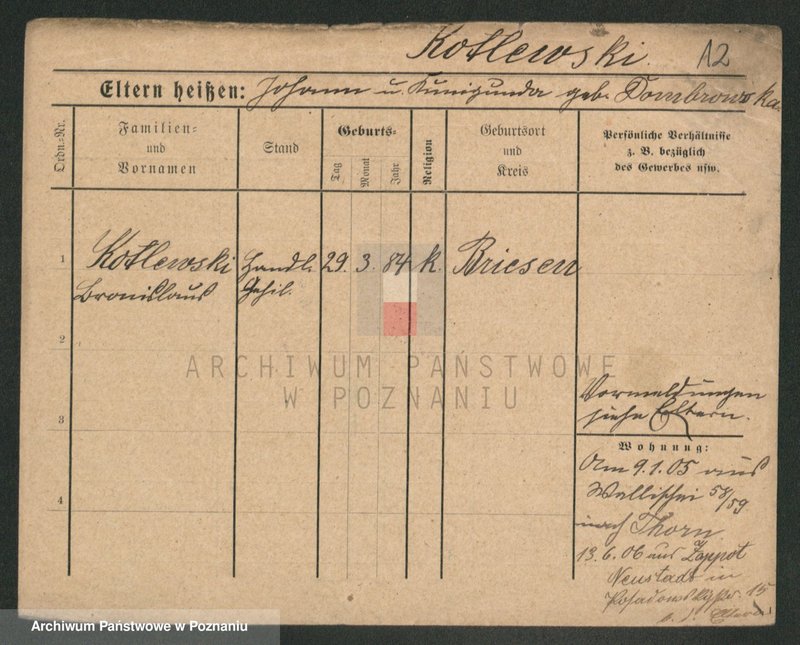 Kotlewski. 12
Eltern heißen: Johann u. Kunigunda geb. Dombrowska
Ordn.-Nr.
Familien- und Vornamen
Stand
Geburts-
Tag
Monat
Jahr
Religion
Geburtsort und Kreis
Persönliche Verhältnisse
z. B. bezüglich
des Gewerbes usw.
1 Kotlewski Handl. 29. 3. 84 k. Briesen
Bronislaus Gehil.
2
ARCHIWUM PAŃSTWOWE
W POZNANIU
3
4
Vormeldungen
siehe Eltern.
Wohnung:
Am 9.1.05 aus
Wallischei 58/59
nach Thorn
13.6.06 aus Zoppot
Neustadt in
15
Archiwum Państwowe w Poznaniu